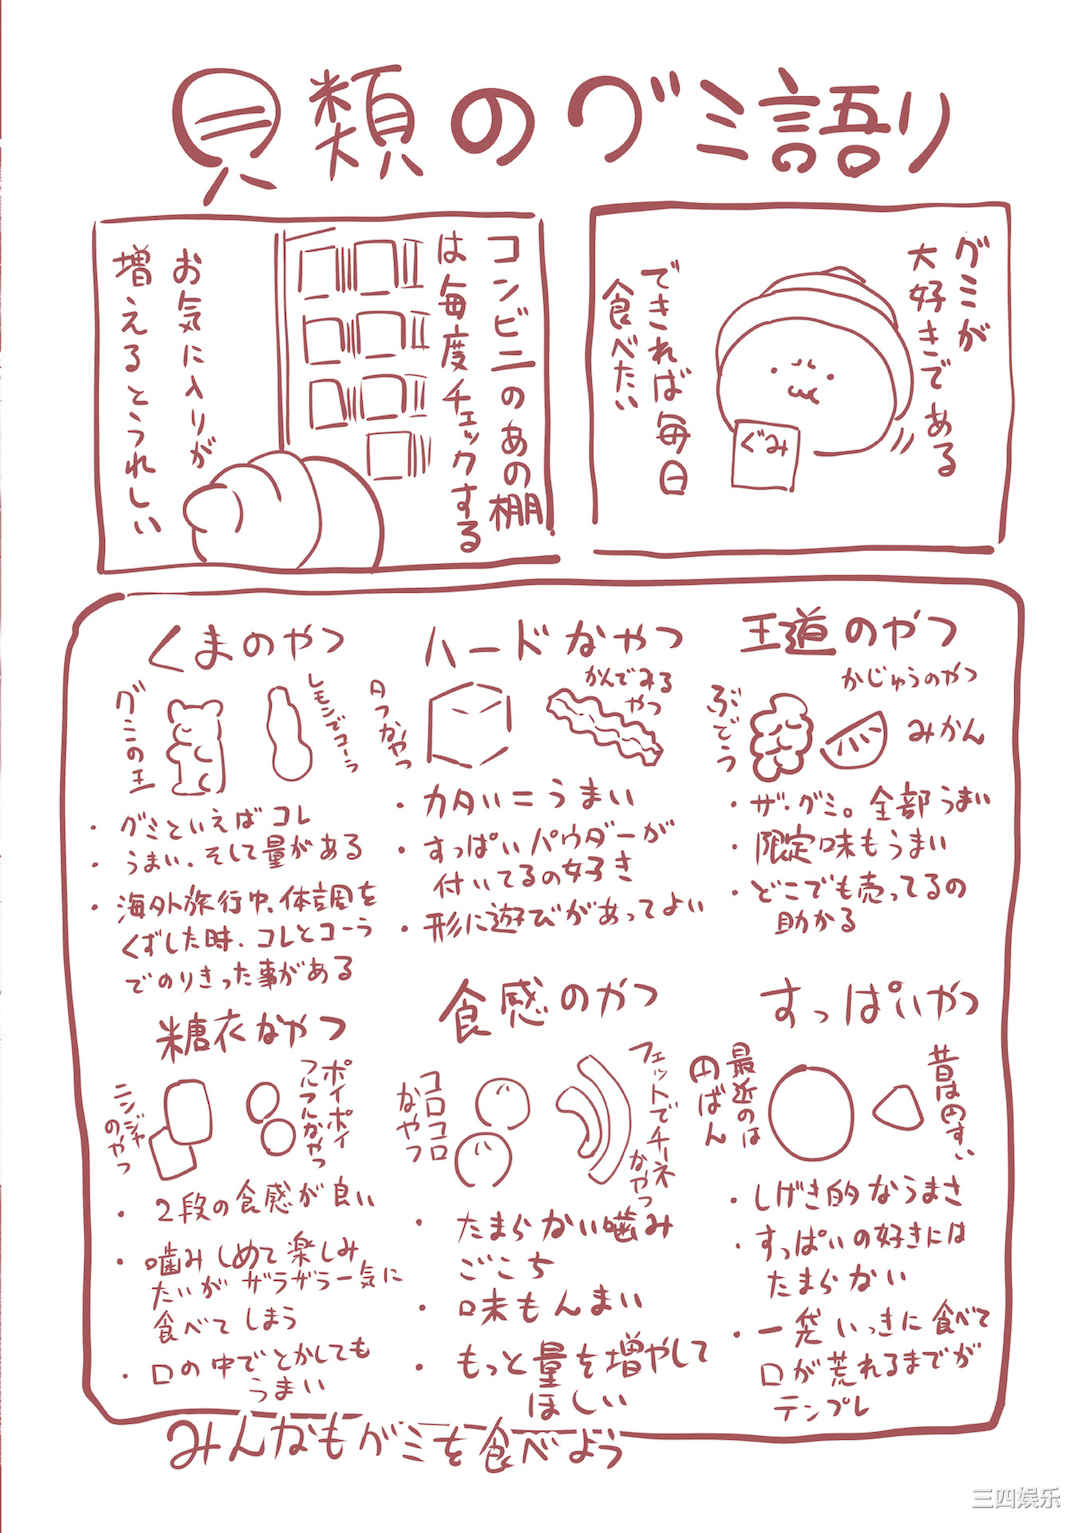 貝類のグミ語り
グミが
大好きである
できれば毎日
食べたい
ぐみ
コンビニのあの棚
は毎度チェックする
お気に入りが
増えるとうれしい
王道のやつ
かじゅうのやつ
ぶどう
みかん
・ザ・グミ。全部うまい
・限定味もうまい
・どこでも売ってるの
助かる
ハードなやつ
かんでみる
やつ
カタいニうまい
・すっぱいパウダーが
付いてるの好き
・形に遊びがあってよい
くまのやつ
グミの王
レモンでコーラ
・グミといえばコレ
・うまい、そして量がある
・海外旅行中、体調を
くずした時、コレとコーラ
でのりきった事がある
すっぱいやつ
最近のは
円ばん
昔は
・しげき的なうまさ
・すっぱいの好きには
たまらない
・一発いっきに食べて
口が荒れるまでが
テンプレ
食感のやつ
フェットチーネ
なやつ
コロコロ
なやつ
・たまらない噛み
ごこち
・味もんまい
・もっと量を増やして
ほしい
糖衣なやつ
ポイポイ
ニンジャ
のやつ
・2段の食感が良い
・噛みしめて楽しみ
たいがザラザラ一気に
食べてしまう
・口の中でとかしても
うまい
みんなもグミを食べよう
三四娱乐